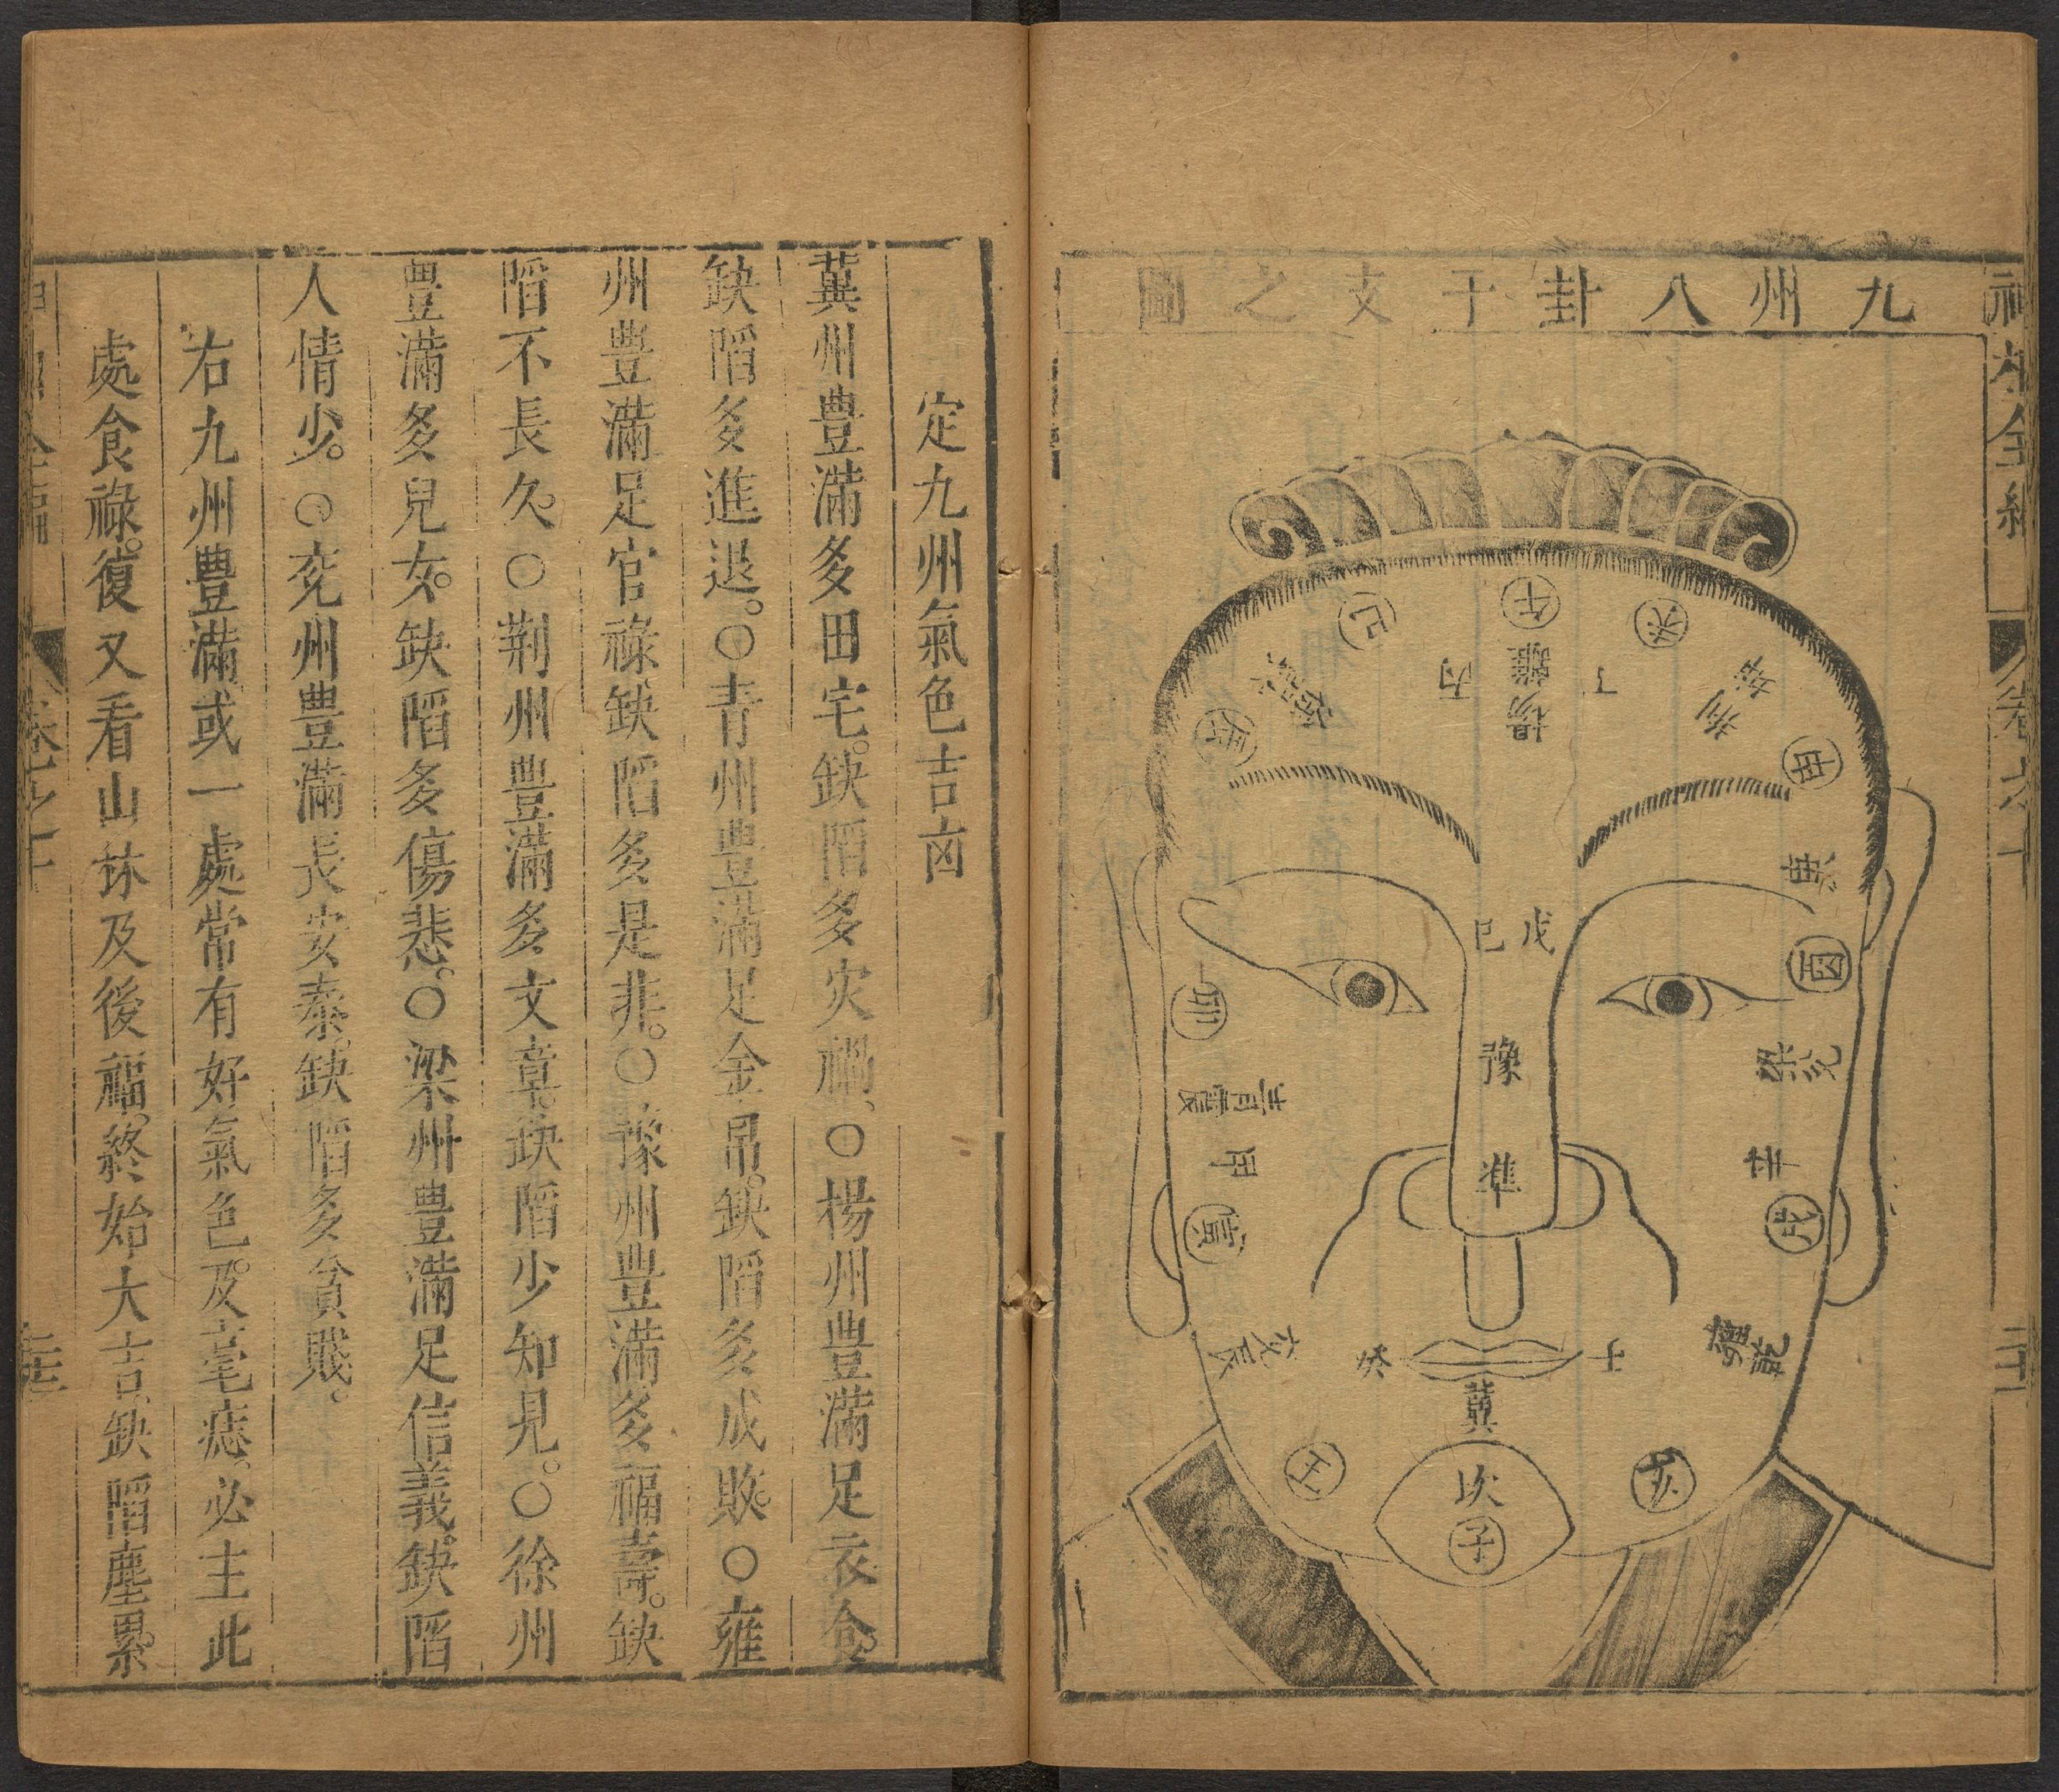 九州八卦干支之圖
相全編
午
巳
未
離
楊
丙
丁
荆
坤
巽
徐
辰
申
庚
戊
己
酉
卯
豫
兌
梁
青震
甲
辛
準
寅
戌
雍乾
癸
壬
冀
丑
亥
坎
子
定九州氣色吉凶
冀州豊滿多田宅。缺陷多灾禍、○楊州豊滿足衣食。
缺陷多進退。○青州豊滿足金帛。缺陷多成敗。○雍
州豊滿足官祿缺陷多是非。○豫州豊滿多福壽。缺
陷不長久。○荆州豊滿多文章。缺陷少知見。○徐州
豊滿多兒女。缺陷多傷悲。○梁州豊滿足信義。缺陷
人情少。○兖州豊滿長安泰。缺陷多貧賤。
右九州豊滿或一處常有好氣色。及毫痣。必主此
處食祿。復又看山林及後福。終始大吉。缺陷塵累。